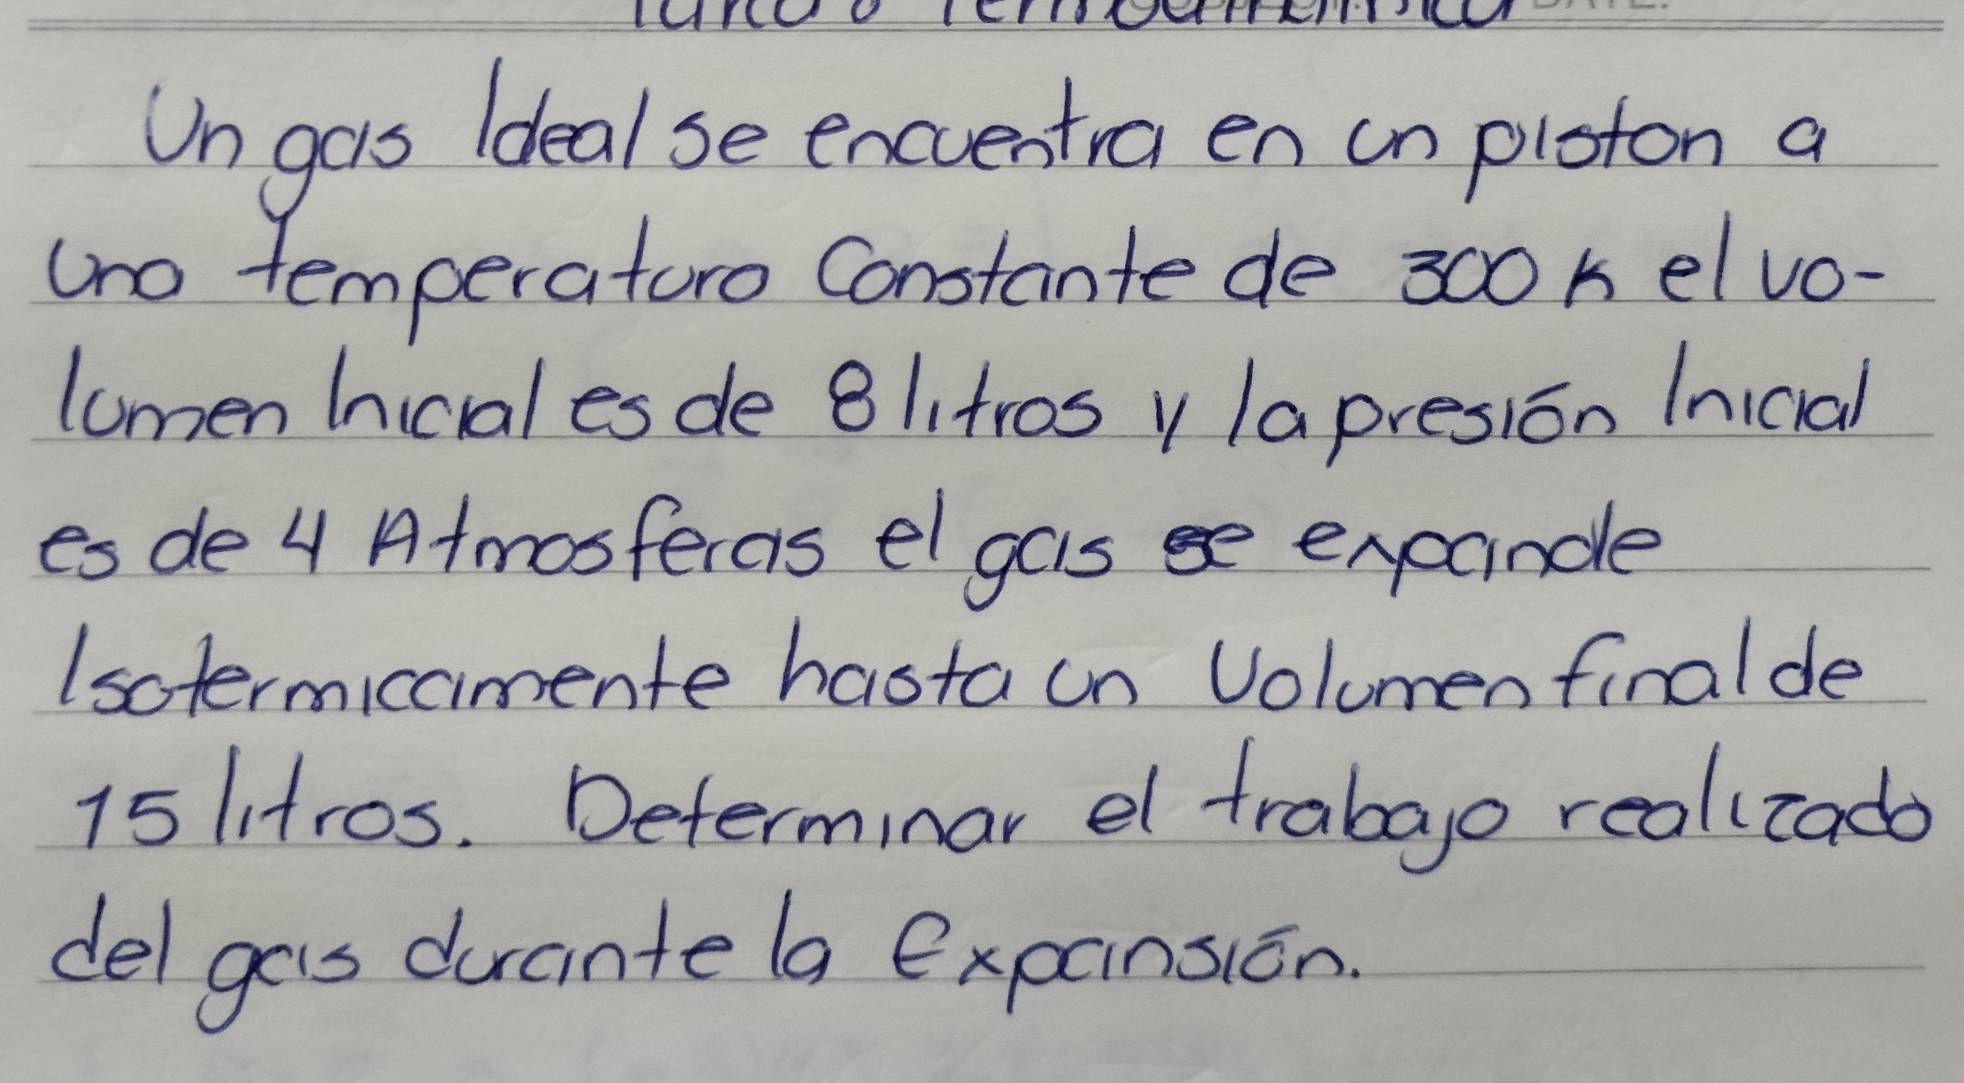 Un gas Ideal se encuentra en un piston a
una temperatura Constante de 300 K el vo-
lumen Inicial es de 8 litros y la presión Inicial
es de 4 Atmosferas el gas se expande
Isotermicamente hasta un Volumen final de
15 litros. Determinar el trabajo realizado
del gas durante la Expansión.